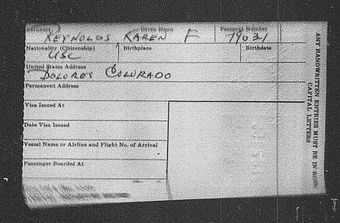 Family Name Given Name Passport Number
REYNOLDS KAREN F 79031
Nationality (Citizenship) Birthplace Birthdate
USC
United States Address
DOLORES COLORADO
Permanent Address
Visa Issued At
Date Visa Issued
Vessel Name or Airline and Flight No. of Arrival
Passenger Boarded At
ANY HANDWRITTEN ENTRIES MUST BE IN
CAPITAL LETTERS